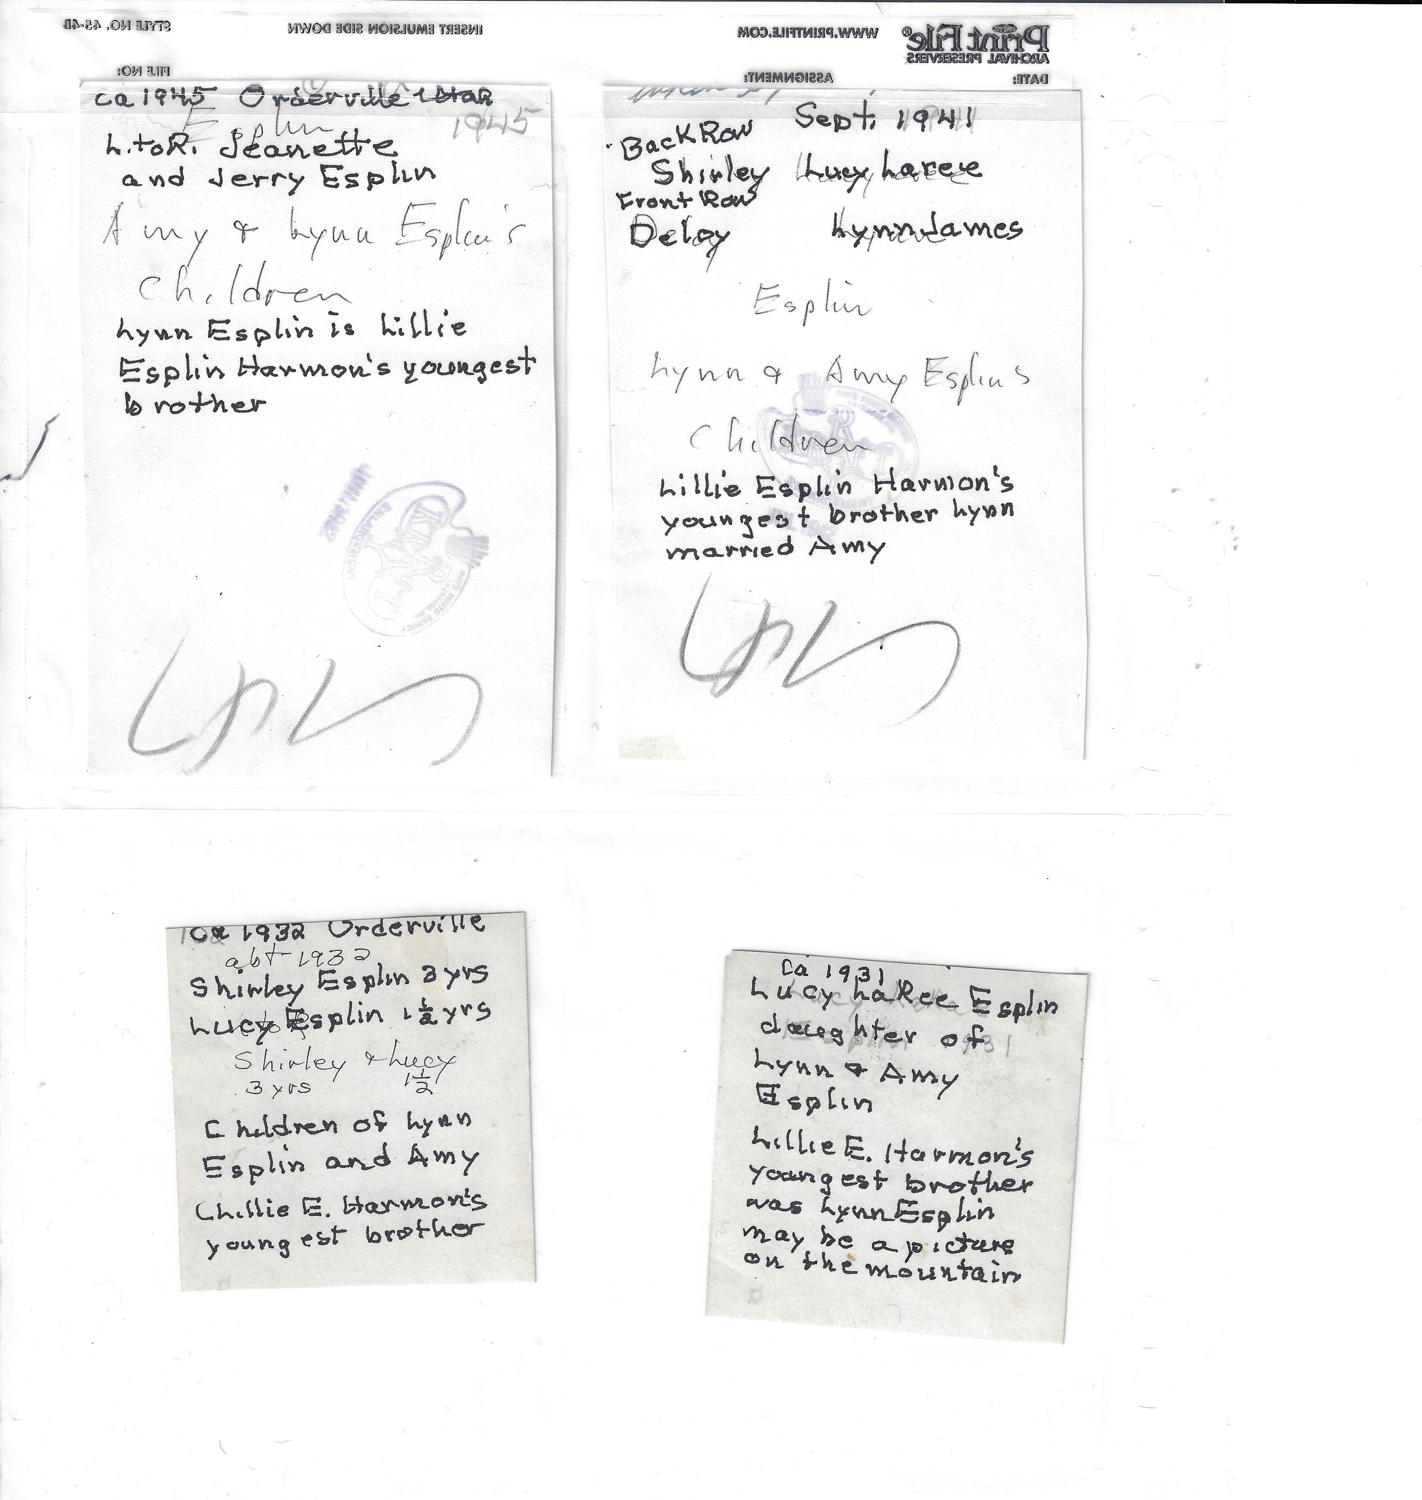 STYLE NO. 45-4B
INSERT EMULSION SIDE DOWN
WWW.PRINTFILE.COM
Print File®
ARCHIVAL PRESERVERS
FILE NO:
ASSIGNMENT:
DATE:
ca 1945 Orderville Utah
Esplin 1945
L. to R. Jeanette
and Jerry Esplin
Amy & Lynn Esplin's
Children
Lynn Esplin is Lillie
Esplin Harmon's youngest
brother
Sept. 1941
Back Row
Shirley Lucy Laree
Front Row
Deloy Lynn James
Esplin
Lynn & Amy Esplin's
Children
Lillie Esplin Harmon's
youngest brother Lynn
married Amy
Ca 1932 Orderville
abt 1932
Shirley Esplin 3 yrs
Lucy Esplin 1 1/2 yrs
Shirley & Lucy
3 yrs 1 1/2
Children of Lynn
Esplin and Amy
Lillie E. Harmon's
youngest brother
Ca 1931
Lucy LaRee Esplin
daughter of
Lynn & Amy
Esplin
Lillie E. Harmon's
youngest brother
was Lynn Esplin
may be a picture
on the mountain